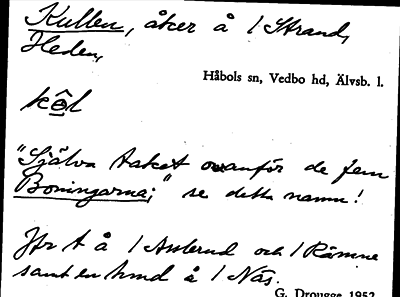 Kullen, åker å 1 Strand,
Heden,
Håbols sn, Vedbo hd, Älvsb. l.
kôl
"Själva taket ovanför de fem
Boningarna;" se detta namn!
Jfr t å 1 och 1 Råmne
samt en hmd å 1 Näs.
G. Drougge 1952